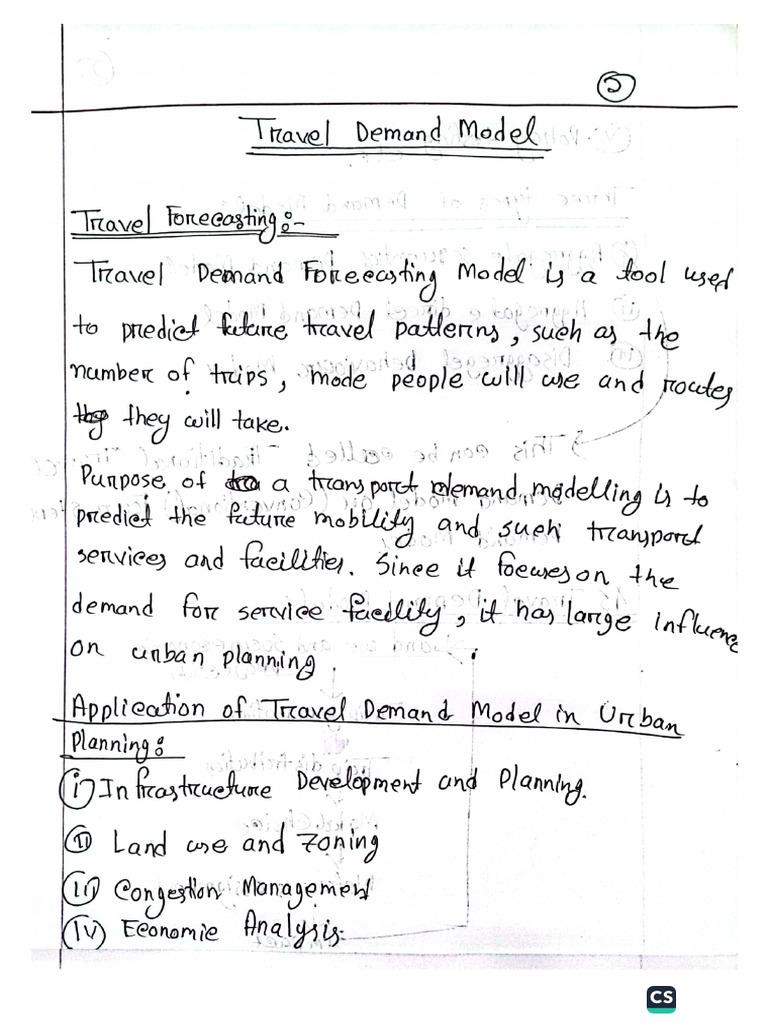 Travel Demand Model
Travel Forecasting:-
Travel Demand Forecasting Model is a tool used
to predict future travel patterns, such as the
number of trips, mode people will use and routes
they will take.
Purpose of a transport demand modelling is to
predict the future mobility and such transport
services and facilities. Since it focuses on the
demand for service facility, it has large influence
on urban planning.
Application of Travel Demand Model in Urban
Planning:
(i) Infrastructure Development and Planning.
(ii) Land use and Zoning
(iii) Congestion Management
(iv) Economic Analysis.
CS